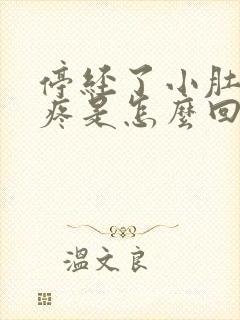 停經了小肚
疼是怎麼回
溫文良